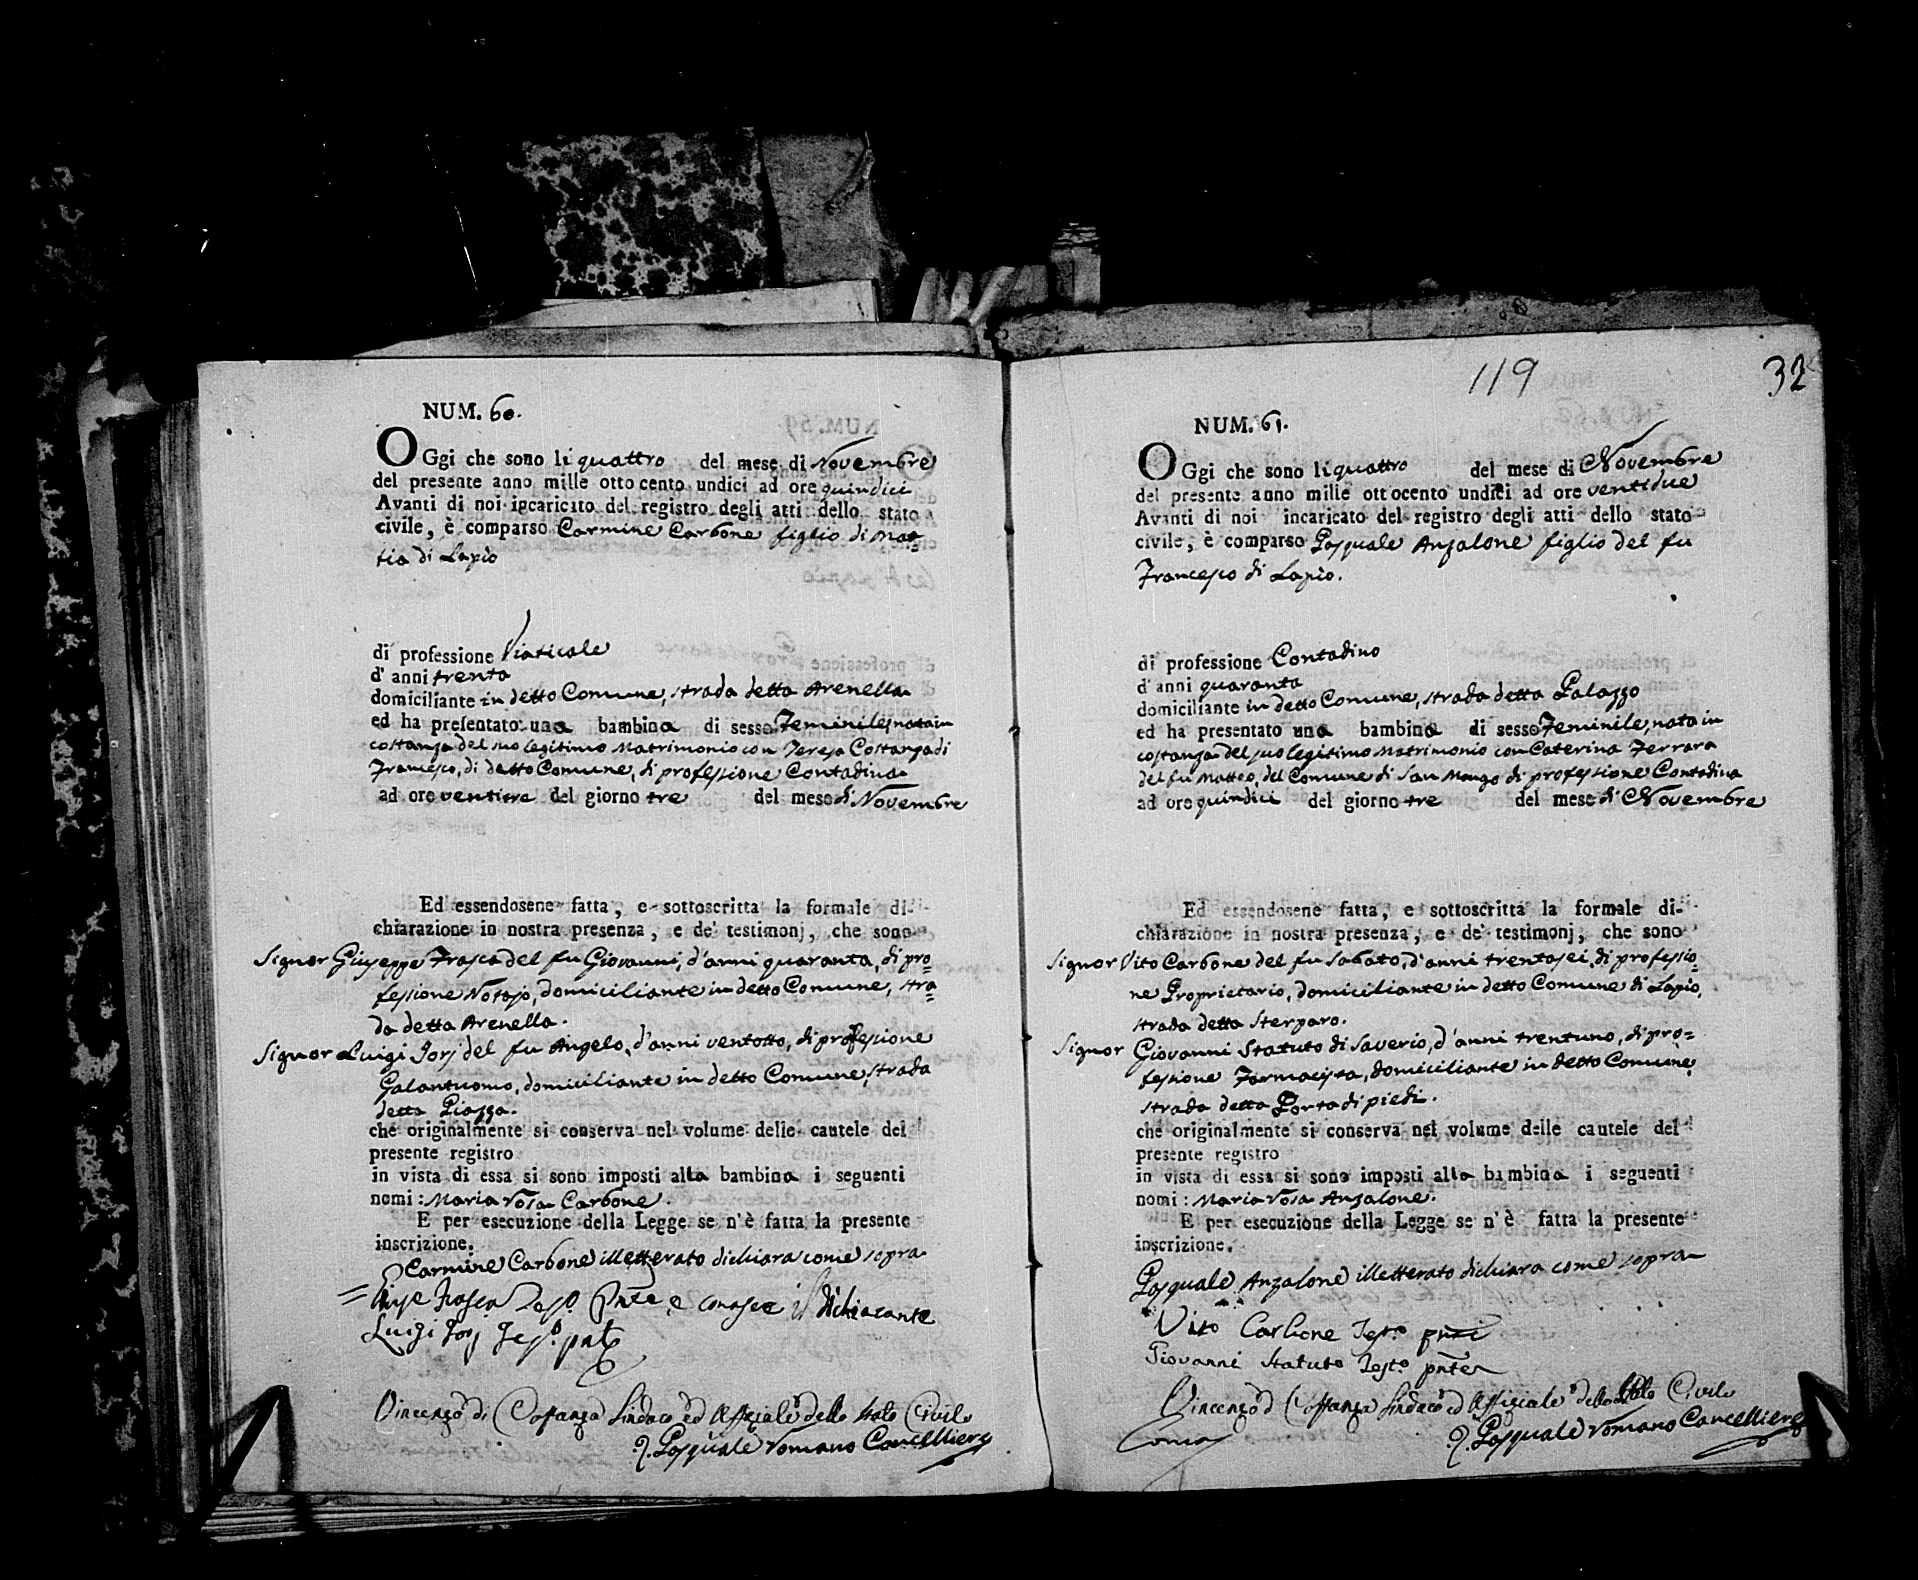 NUM. 60.
OGgi che sono li quattro del mese di Novembre
del presente anno mille ottocento undici ad ore quindici
Avanti di noi incaricato del registro degli atti dello stato
civile, è comparso Carmine Carbone figlio di Mat=
tia di Lapio
di professione Viaticale
d' anni trenta
domiciliante in detto Comune, strada detta Arenella
ed ha presentato una bambina di sesso Feminile, nata in
costanza del suo legitimo Matrimonio con Teresa Costanza di
Francesco, di detto Comune, di professione Contadina
ad ore ventitre del giorno tre del mese di Novembre
Ed essendosene fatta, e sottoscritta la formale di-
chiarazione in nostra presenza, e de' testimonj, che sono
Signor Giuseppe Frasca del fu Giovanni, d'anni quaranta, di pro=
fessione Notajo, domiciliante in detto Comune, stra=
da detta Arenella.
Signor Luigi Jorj del fu Angelo, d'anni ventotto, di professione
Galantuomo, domiciliante in detto Comune, strada
detta Piazza.
che originalmente si conserva nel volume delle cautele del
presente registro
in vista di essa si sono imposti alla bambina i seguenti
nomi : Maria Rosa Carbone.
E per esecuzione della Legge se n'è fatta la presente
inscrizione.
Carmine Carbone illetterato dichiara come sopra
Frasca e conosce il dichiarante
Luigi Jorj
Vincenzo di Costanza Sindaco ed Uffiziale dello Stato Civile
Pasquale Romano Cancelliere
119
32
NUM. 61.
OGgi che sono li quattro del mese di Novembre
del presente anno mille ottocento undici ad ore ventidue
Avanti di noi incaricato del registro degli atti dello stato
civile, è comparso Pasquale Anzalone figlio del fu
Francesco di Lapio.
di professione Contadino
d' anni quaranta
domiciliante in detto Comune, strada detta Palazzo
ed ha presentato una bambina di sesso Feminile, nata in
costanza del suo legitimo Matrimonio con Caterina Ferrara
del fu Matteo, del Comune di San Mango di professione Contadina
ad ore quindici del giorno tre del mese di Novembre
Ed essendosene fatta, e sottoscritta la formale di-
chiarazione in nostra presenza, e de' testimonj, che sono
Signor Vito Carbone del fu Sabato, d'anni trentasei, di professio=
ne Proprietario, domiciliante in detto Comune di Lapio,
strada detta Sterparo.
Signor Giovanni Statuto di Saverio, d'anni trentuno, di pro=
fessione Farmacista, domiciliante in detto Comune,
strada detta Porta di piedi.
che originalmente si conserva nel volume delle cautele del
presente registro
in vista di essa si sono imposti alla bambina i seguenti
nomi : Maria Rosa Anzalone.
E per esecuzione della Legge se n'è fatta la presente
inscrizione.
Pasquale Anzalone illetterato dichiara come sopra
Vito Carbone Testo pnte
Giovanni Statuto Testo pnte
Vincenzo di Costanza Sindaco ed Uffiziale dello Stato Civile
Pasquale Romano Cancelliere